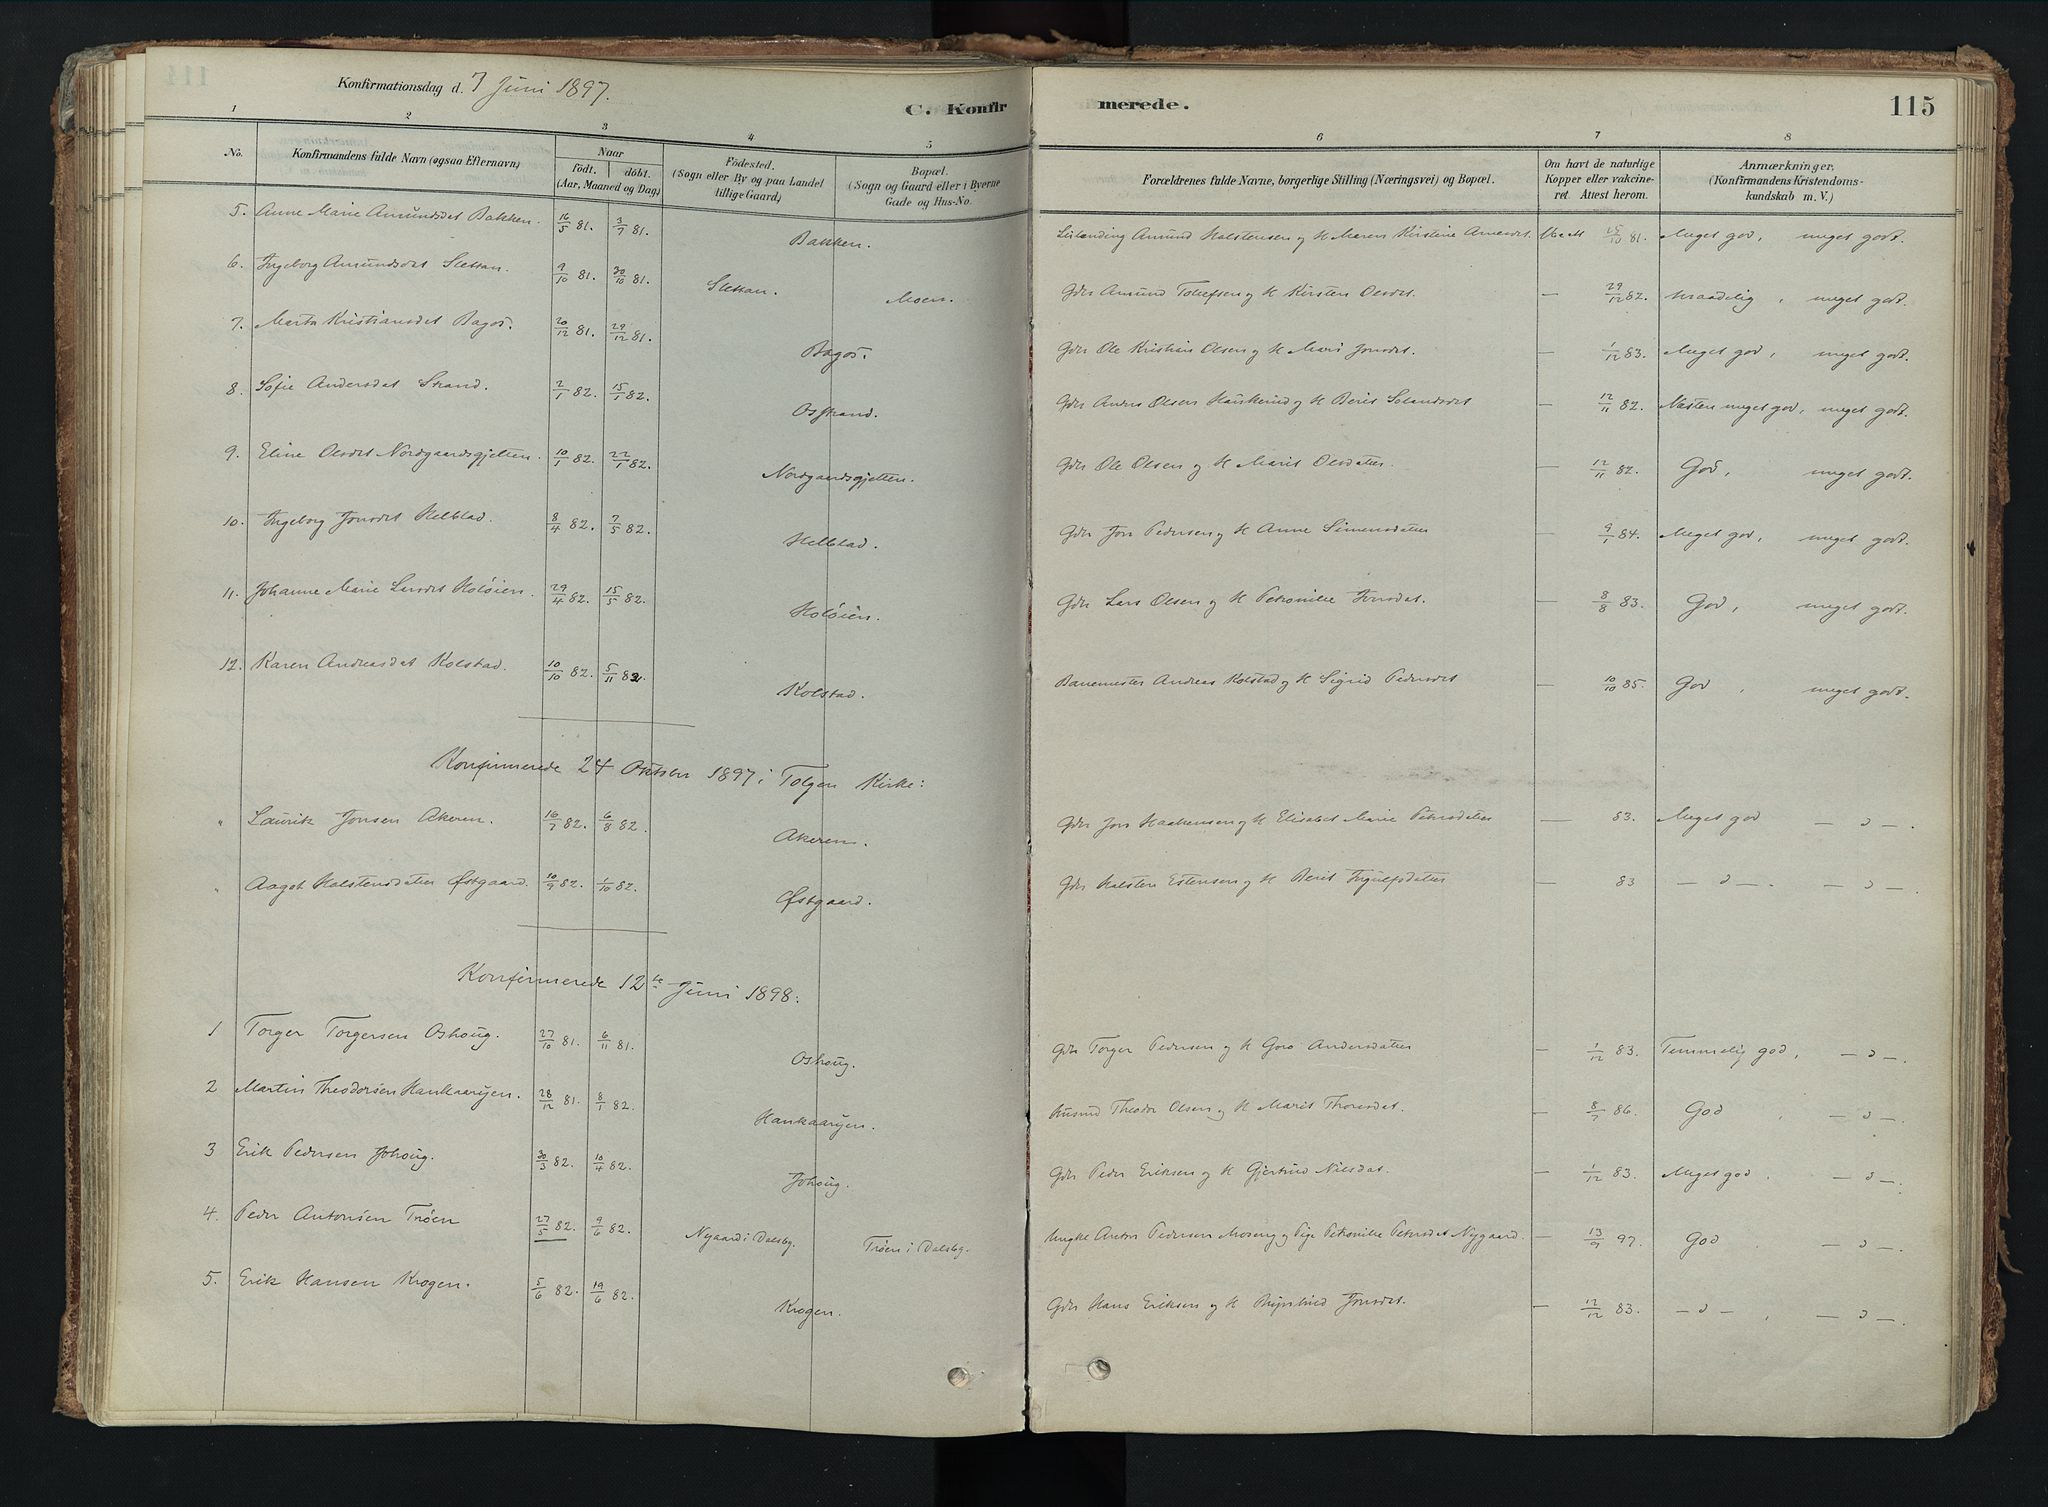 Konfirmationsdag d. 7 Juni 1897.
C. Konfirmerede.
115
1 2 3 4 5 6 7 8
No. Konfirmandens fulde Navn (ogsaa Efternavn) Naar født. døbt. (Aar, Maaned og Dag) Fødested. (Sogn eller By og paa Landet tillige Gaard) Bopæl. (Sogn og Gaard eller i Byerne Gade og Hus-No. Forældrenes fulde Navne, borgerlige Stilling (Næringsvei) og Bopæl. Om havt de naturlige Kopper eller vakcineret. Attest herom. Anmærkninger. (Konfirmandens Kristendomskundskab m. V.)
5. Anne Marie Amundsdat Bakken. 16/5 81. 3/7 81. Bakken. Amund Halstensen og H Maren Kirstine 25/10 81. Meget god, meget godt.
6. Ingeborg Amundsdat Slettan. 9/10 81. 30/10 81. Slettan. Moen. Gdr Amund Tollefsen og H Kirsten Olsdat. — 29/12 82. Maadelig, meget godt.
7. Marta Kristiansdat Bagøs. 20/12 81. 29/12 81. Bagøs. Gdr Ole Kristian Olsen og H Mari Jonsdat. — 1/12 83. Meget god, meget godt.
8. Sofie Andersdat Strand. 2/1 82. 15/1 82. Osstrand. Gdr Anders Olsen og H Berit — 12/11 82. Næsten meget god, meget godt.
9. Eline Olsdat Nordgaardsgjelten. 10/1 82. 22/1 82. Nordgaardsgjelten. Gdr Ole Olsen og H Marit Olsdatter. — 12/11 82. God, meget godt.
10. Ingeborg Jonsdat Helblad. 8/4 82. 7/5 82. Helblad. Gdr Jon Pedersen og H Anne Simensdatter — 9/1 84. Meget god, meget godt.
11. Johanne Marie Larsdat Holøien. 29/4 82. 15/5 82. Holøien. Gdr Lars Olsen og H Petronille Jonsdat. — 8/8 83. God, meget godt.
12. Karen Andreasdat Kolstad. 10/10 82. 5/11 82. Kolstad. Banemester Andreas Kolstad og H Sigrid Pedersdat — 10/10 85. God, meget godt.
Konfirmerede 24 Oktober 1897 i Tolgen Kirke:
" Laurik Jonsen Akeren. 16/7 82. 6/8 82. Akeren. Gdr Jon Haakensen og H Elisabet Marie Pedersdatter — 83. Meget god — d —.
" Aagot Halstensdatter Østgaard. 10/9 82. 1/10 82. Østgaard. Gdr Halsten Estensen og H Berit Ingulfsdatter — 83 — d —. — d —.
Konfirmerede 12te Juni 1898:
1 Torger Torgersen Oshoug. 27/10 81. 6/11 81. Oshoug. Gdr Torger Pedersen og H Goro Andersdatter — 1/12 83. Temmelig god, — d —.
2 Martin Theodorsen Hankaaryen. 28/12 81. 8/1 82. Hankaaryen. Husmd Theodor Olsen og H Marit Thoresdat. — 8/7 86. God, — d —.
3 Erik Pedersen Johoug. 30/3 82. 10/4 82. Johoug. Gdr Peder Eriksen og H Gjertrud Nilsdat. — 1/12 83. Meget god. — d —.
4. Peder Antonsen Trøen 27/5 82. 9/6 82. Nygaard i Dalsby. Trøen i Dalsby. Ungkr Anton Pedersen Moseng og Pige Petronille Pedersdat Nygaard. — 13/9 97. God. — d —.
5. Erik Hansen Krogen. 5/6 82. 19/6 82. Krogen. Gdr Hans Eriksen og H Jonsdat. — 12/12 83. — d —, — d —.